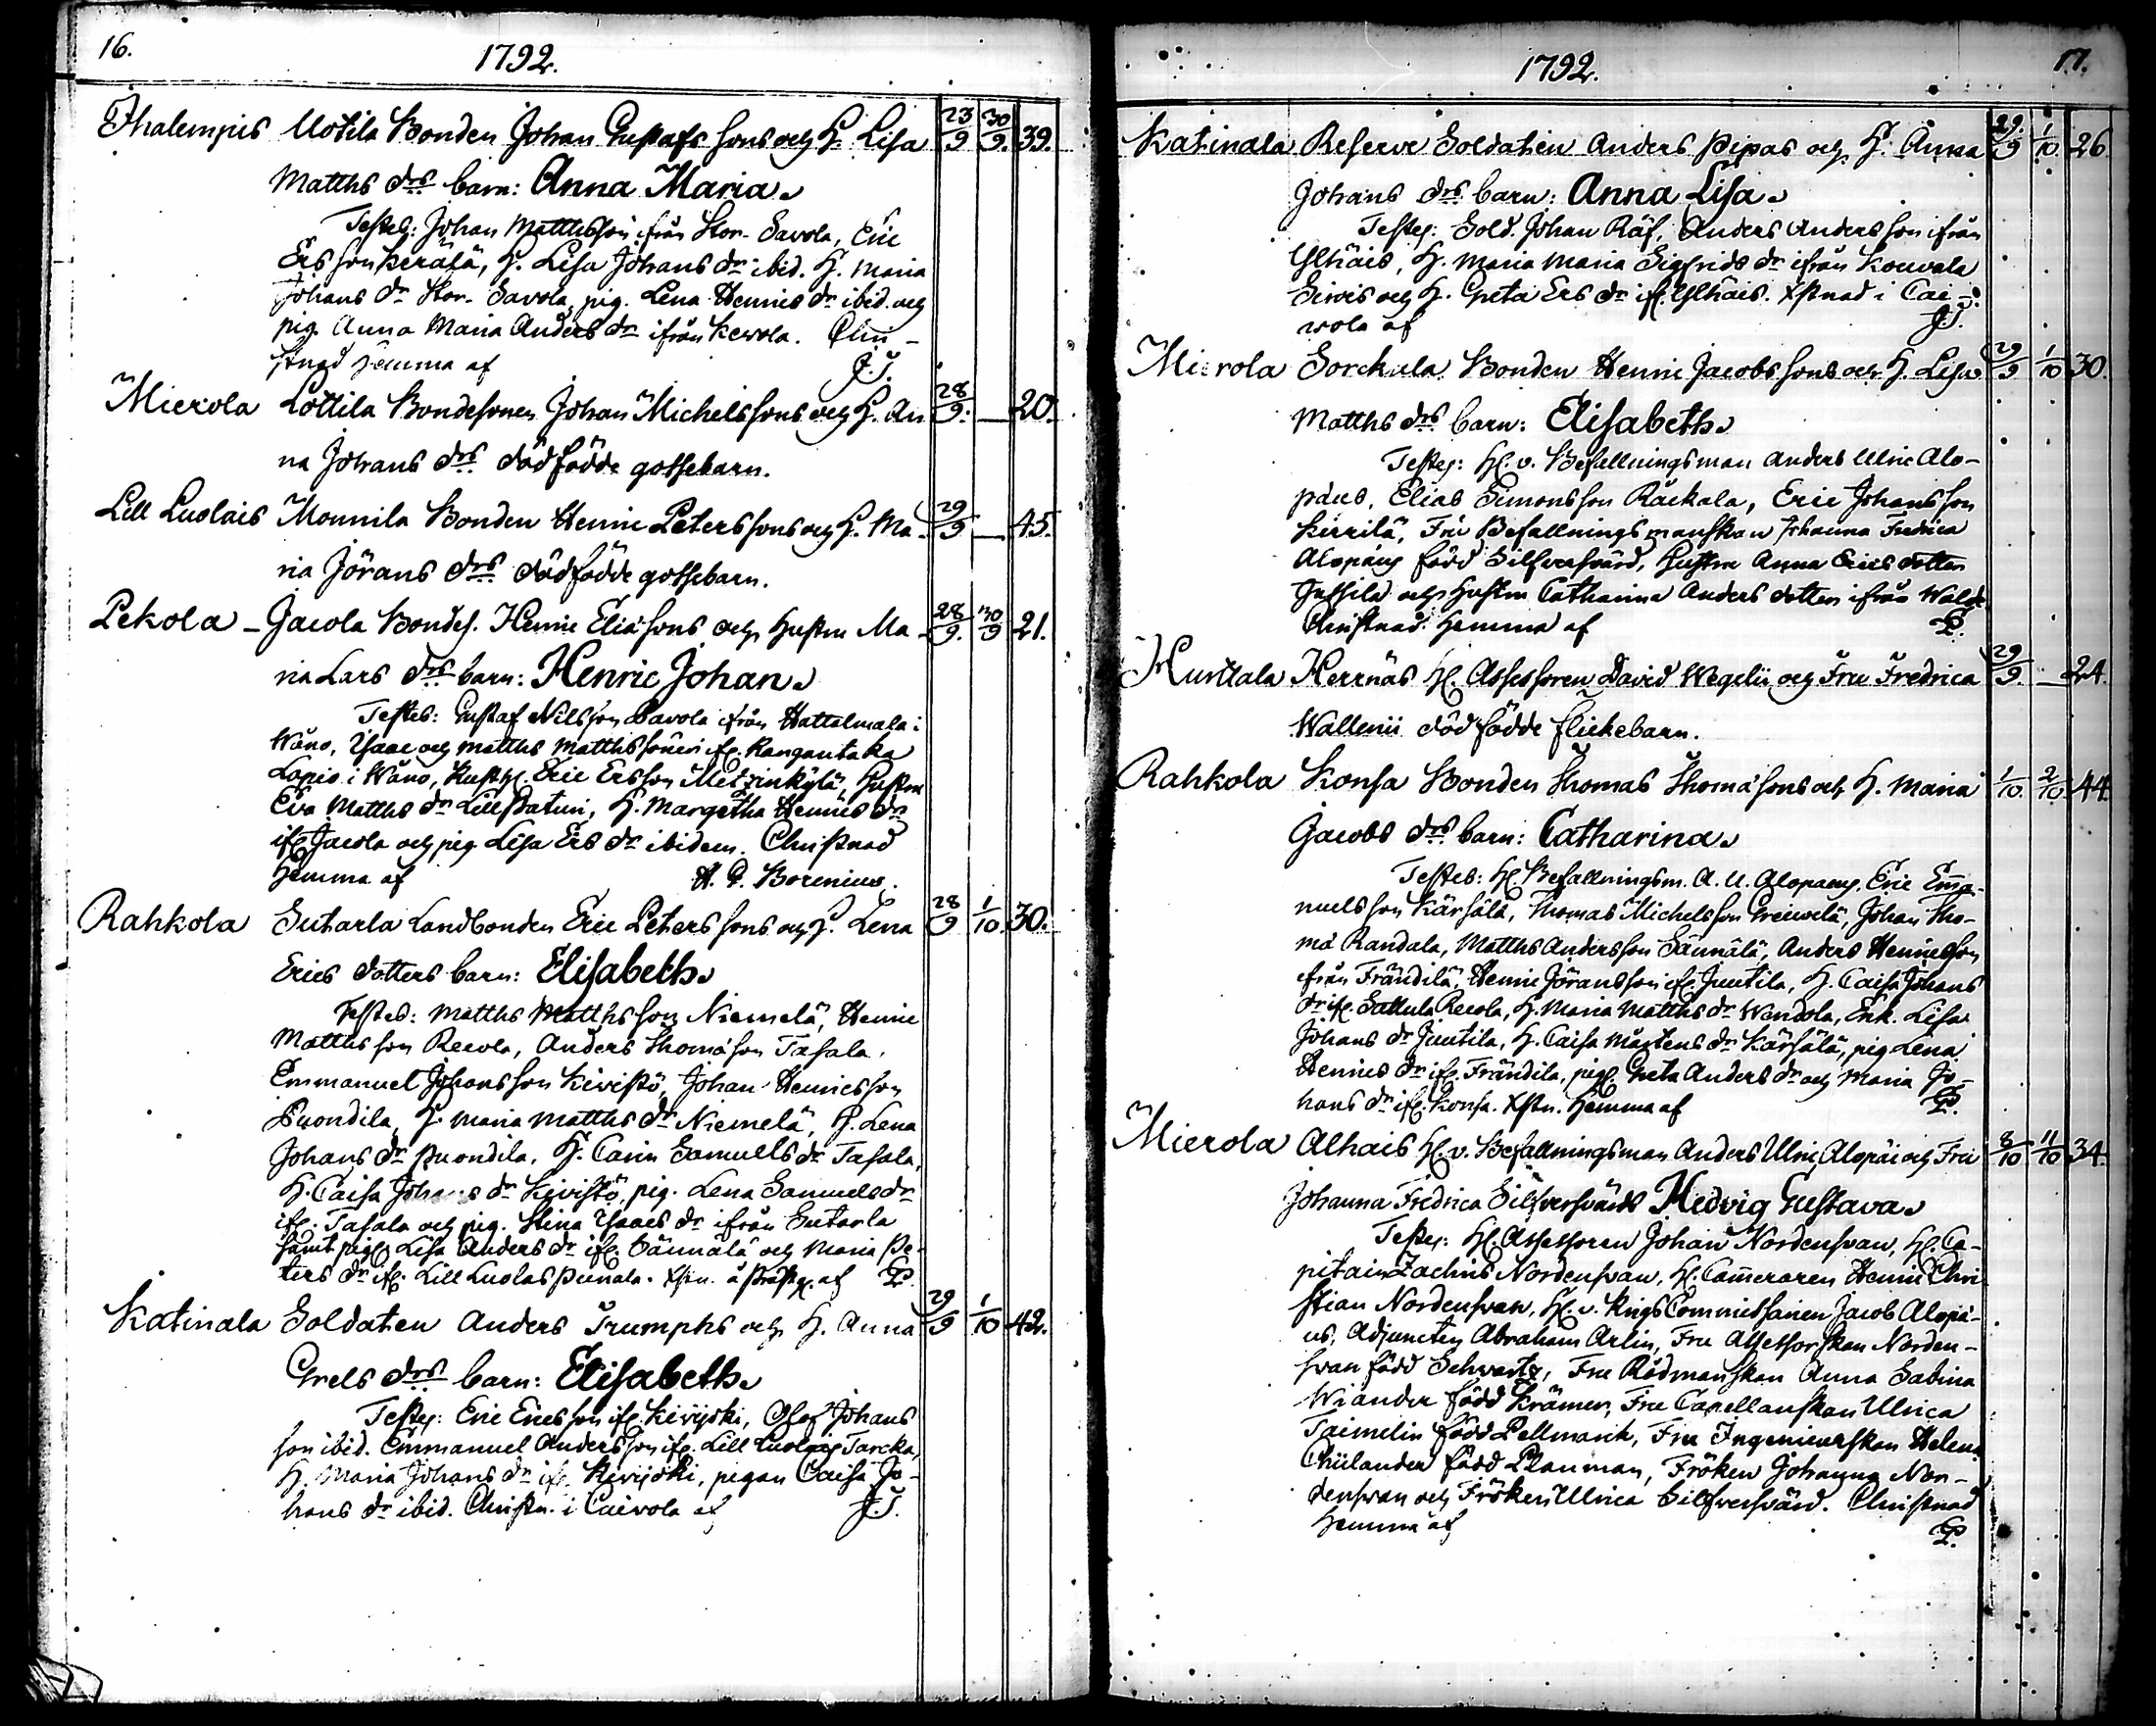 16.
1792.
Thalempis Uotila Bonden Johan Gustafs sons och H. Lisa 23/9 30/9. 39.
Matths drs barn: Anna Maria.
Testes: Johan Matthsson ifrån Stor-Savola, Eric
Ersson Perälä, H. Lisa Johans dr ibid. H. Maria
Johans dr Stor-Savola, pig. Lena Henrics dr ibid. och
pig. Anna Maria Anders dr ifrån Kerola. Chri-
stnad hemma af J.T.
Mierola Lottila Bondesonen Johan Michelssons och H. An 28/9. — 20.
na Johans drs dödfödde gossebarn.
Lill Luolais Mounila Bonden Henric Peterssons och H. Ma- 29/9 — 45.
ria Jörans drs dödfödde gossebarn.
Pekola - Jacola Bondes. Henric Eliæsons och Hustru Ma- 28/9. 30/9 21.
ria Lars drs barn: Henric Johan.
Testes: Gustaf Nilsson Savola ifrån Hattelmala i
Wåno, Isaac och Matths Matthssöner ifr. Kangantaka
Lopis i Wåno, Eric Ersson Metzinkylä, Hustru
Eva Matths dr Lill Paturi, H. Margetha Henrics dr
ifr. Jacola och pig. Lisa Ers dr ibidem. Christnad
hemma af H. G. Borenius.
Rahkola Sutarla Landbonden Eric Peters sons och H. Lena 28/9 1/10. 30.
Erics dotters barn: Elisabeth.
Testes: Matths Matthsson Niemelä, Henric
Matthsson Recola, Anders Thomæson Tasala,
Emmanuel Johansson Kivistö, Johan Henricsson
Puondila, H. Maria Matths dr Niemelä, H. Lena
Johans dr Puondila, H. Carin Samuells dr Tasala,
H. Caisa Johans dr Kivistö, pig. Lena Samuels dr
ifr. Tasala och pig. Stina Isaacs dr ifrån Sutarla
samt pig. Lisa Anders dr ifr. Sännälä och Maria Pe-
ters dr ifr. Lill Luolas Punala. Xstn. å Prästg. af
Katinala Soldaten Anders Trumphs och H. Anna 29/9 1/10 42.
Grels drs barn: Elisabeth.
Testes: Eric Ericsson ifr. Kivijoki, Olof Johans
son ibid. Emmanuel Andersson ifr. Lill Luolais Tarcka,
H. Maria Johans dr ifr. Kivijoki, pigan Caisa Jo-
hans dr ibid. Christn. i Caivola af J.T.
1792.
17.
Katinala Reserve Soldaten Anders Pipas och H. Anna 29./9 1/10. 26
Johans drs barn: Anna Lisa.
Testes: Sold. Johan Räf, Anders Andersson ifrån
Ylhäis, H. Maria Maria Sigfrids dr ifrån Kouvala
Sirvis och H. Greta Ers dr ifr. Ylhäis. Xstnad i Cai-
vola af J.T.
Mierola Sorckula Bonden Henric Jacobssons och H. Lisa 29/9 1/10 30.
Matths drs barn: Elisabeth.
Testes: H. v. Befallningsman Anders Ulric Alo-
pæus, Elias Simonsson Räckala, Eric Johansson
Kirrilä, Fru Befallningsmanskan Johanna Fredrica
Alopæus född Silfversvärd, Hustru Anna Erics dotter
Jussila och Hustru Catharina Anders dotter ifrån
Christnad hemma af
Hurttala Herrnäs H. Assessoren David Wegelii och Fru Fredrica 29/9. — 24.
Wallenii dödfödde flickebarn.
Rahkola Konsa Bonden Thomas Thomæsons och H. Maria 1/10. 2/10. 44.
Jacobs drs barn: Catharina.
Testes: H. Befallningsm. A. U. Alopæus, Eric Ema-
nuelsson Kärsälä, Thomas Michelsson, Johan Tho-
mæ Randala, Matths Andersson Sännälä, Anders Henricsson
ifrån Frändilä, Henric Jöransson ifr. Juutila, H. Caisa Johans
dr ifr. Sattula Recola, H. Maria Matths dr, Enk. Lisa
Johans dr Juutila, H. Caisa Mårtens dr Kärsälä, pig. Lena
Henrics dr ifr. Frändila, pig. Greta Anders dr och Maria Jo-
hans dr ifr. Konsa. Xstn. hemma af
Mierola Alhais H. v. Befallningsman Anders Ulric Alopæi och Fru 8/10 11/10 34.
Johanna Fredrica Silfversvärds Hedvig Gustava.
Testes: H. Assessoren Johan Nordensvan, H. Ca-
pitain Zachris Nordensvan, H. Cameraren Henric Chri-
stian Nordensvan, H. v. Krigs Commissarien Jacob Alopæ-
us, Adjuncten Abraham Arlin, Fru Assessorskan Norden-
svan född Schwartz, Fru Rådmanskan Anna Sabina
Wiander född Krämer, Fru Capellanskan Ulrica
Taimelin född Pellmarck, Fru Ingenieurskan Helena
Chiilander född Planman, Fröken Johanna Nor-
densvan och Fröken Ulrica Silfversvärd. Christnad
hemma af